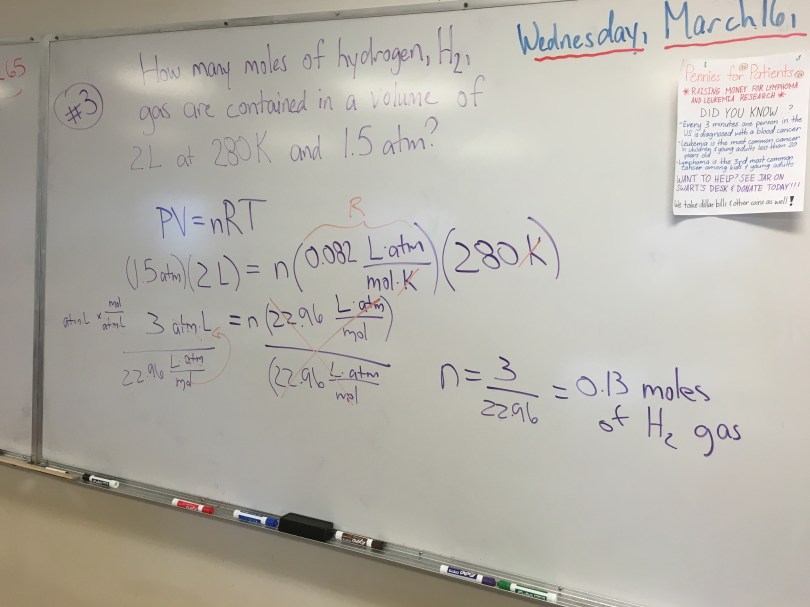 Wednesday, March 16,
265
#3
How many moles of hydrogen, H₂,
gas are contained in a volume of
2L at 280K and 1.5 atm?
PV=nRT
R
(1.5atm)(2L) = n(0.082 L·atm/mol·K)(280K)
atm·L × mol/atm·L 3 atm·L = n(22.96 L·atm/mol)
22.96 L·atm/mol (22.96 L·atm/mol)
n = 3/22.96 = 0.13 moles
of H₂ gas
Pennies for Patients
* RAISING MONEY FOR LYMPHOMA
AND LEUKEMIA RESEARCH *
DID YOU KNOW ?
-Every 3 minutes one person in the
US is diagnosed with a blood cancer
-Leukemia is the most common cancer
in children & young adults less than 20
years old
-Lymphoma is the 3rd most common
cancer among kids & young adults
WANT TO HELP? SEE JAR ON
SWART'S DESK & DONATE TODAY!!!
We take dollar bills & other coins as well!